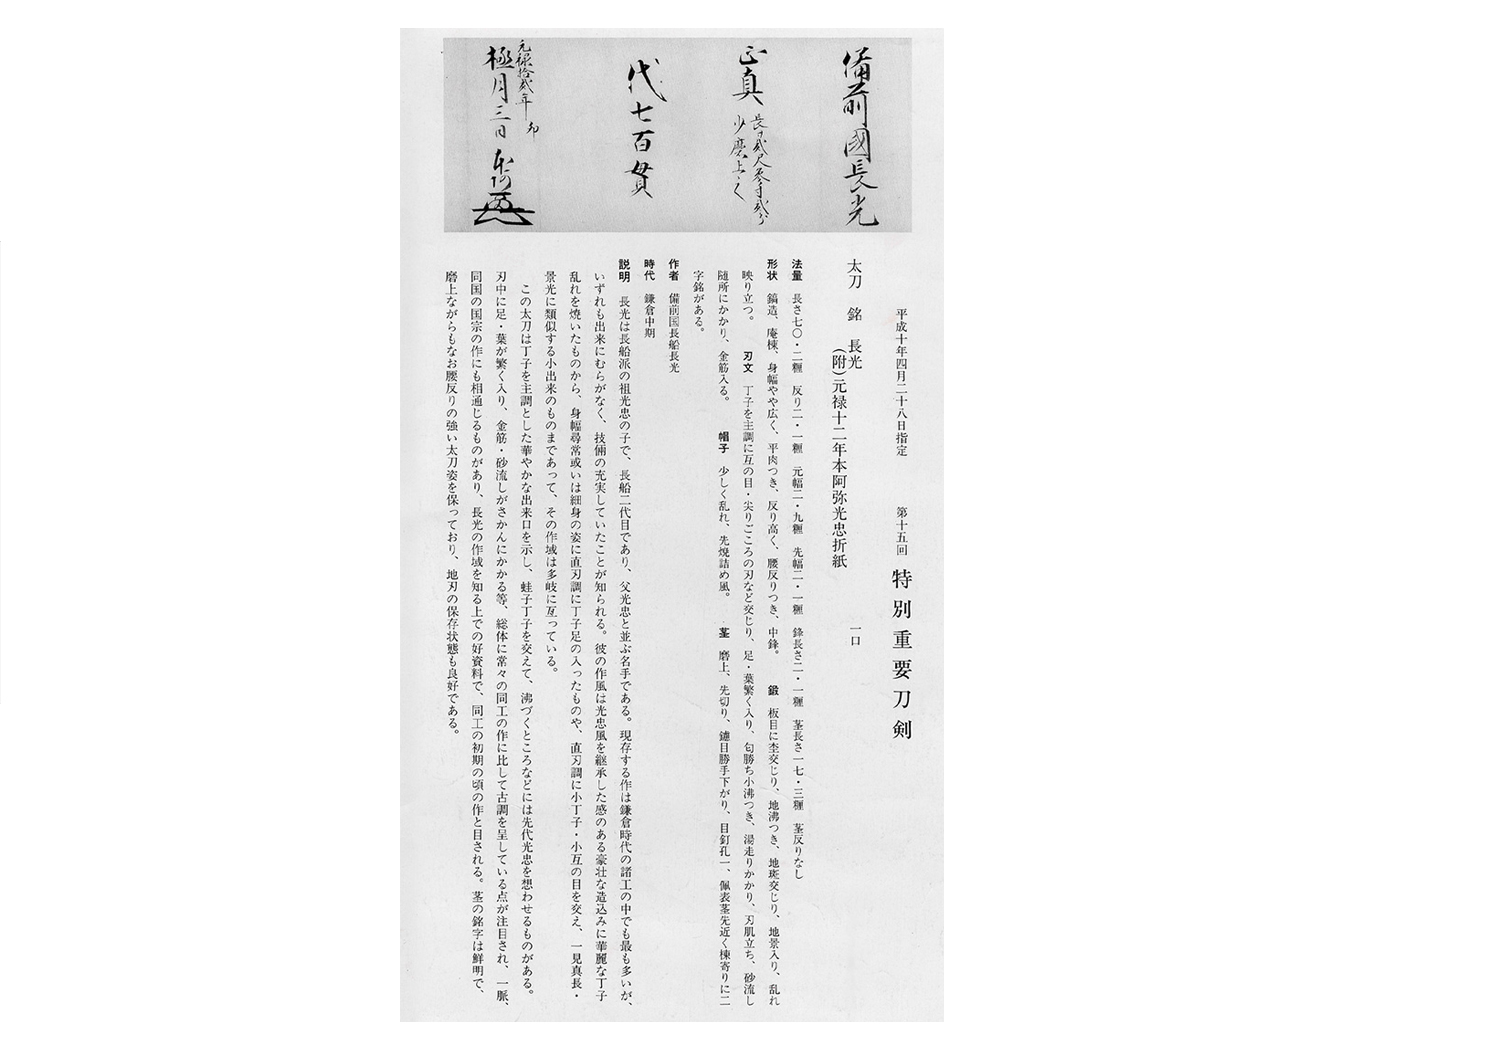 備前國長光
正真 長サ貳尺参寸貳分
少磨上ヶ
代七百貫
元禄拾貳年 卯
極月三日 本阿
平成十年四月二十八日指定 第十五回 特別重要刀剣
太刀 銘 長光 一口
(附)元禄十二年本阿弥光忠折紙
法量 長さ七〇・二糎 反り二・一糎 元幅二・九糎 先幅二・一糎 鋒長さ二・一糎 茎長さ一七・三糎 茎反りなし
形状 鎬造、庵棟、身幅やや広く、平肉つき、反り高く、腰反りつき、中鋒。 鍛 板目に杢交じり、地沸つき、地斑交じり、地景入り、乱れ
映り立つ。 刃文 丁子を主調に互の目・尖りごころの刃など交じり、足・葉繁く入り、匂勝ち小沸つき、湯走りかかり、刃肌立ち、砂流し
随所にかかり、金筋入る。 帽子 少しく乱れ、先焼詰め風。 茎 磨上、先切り、鑢目勝手下がり、目釘孔一、佩表茎先近く棟寄りに二
字銘がある。
作者 備前国長船長光
時代 鎌倉中期
説明 長光は長船派の祖光忠の子で、長船二代目であり、父光忠と並ぶ名手である。現存する作は鎌倉時代の諸工の中でも最も多いが、
いずれも出来にむらがなく、技倆の充実していたことが知られる。彼の作風は光忠風を継承した感のある豪壮な造込みに華麗な丁子
乱れを焼いたものから、身幅尋常或いは細身の姿に直刃調に丁子足の入ったものや、直刃調に小丁子・小互の目を交え、一見真長・
景光に類似する小出来のものまであって、その作域は多岐に亙っている。
この太刀は丁子を主調とした華やかな出来口を示し、蛙子丁子を交えて、沸づくところなどには先代光忠を想わせるものがある。
刃中に足・葉が繁く入り、金筋・砂流しがさかんにかかる等、総体に常々の同工の作に比して古調を呈している点が注目され、一脈、
同国の国宗の作にも相通じるものがあり、長光の作域を知る上での好資料で、同工の初期の頃の作と目される。茎の銘字は鮮明で、
磨上ながらもなお腰反りの強い太刀姿を保っており、地刃の保存状態も良好である。